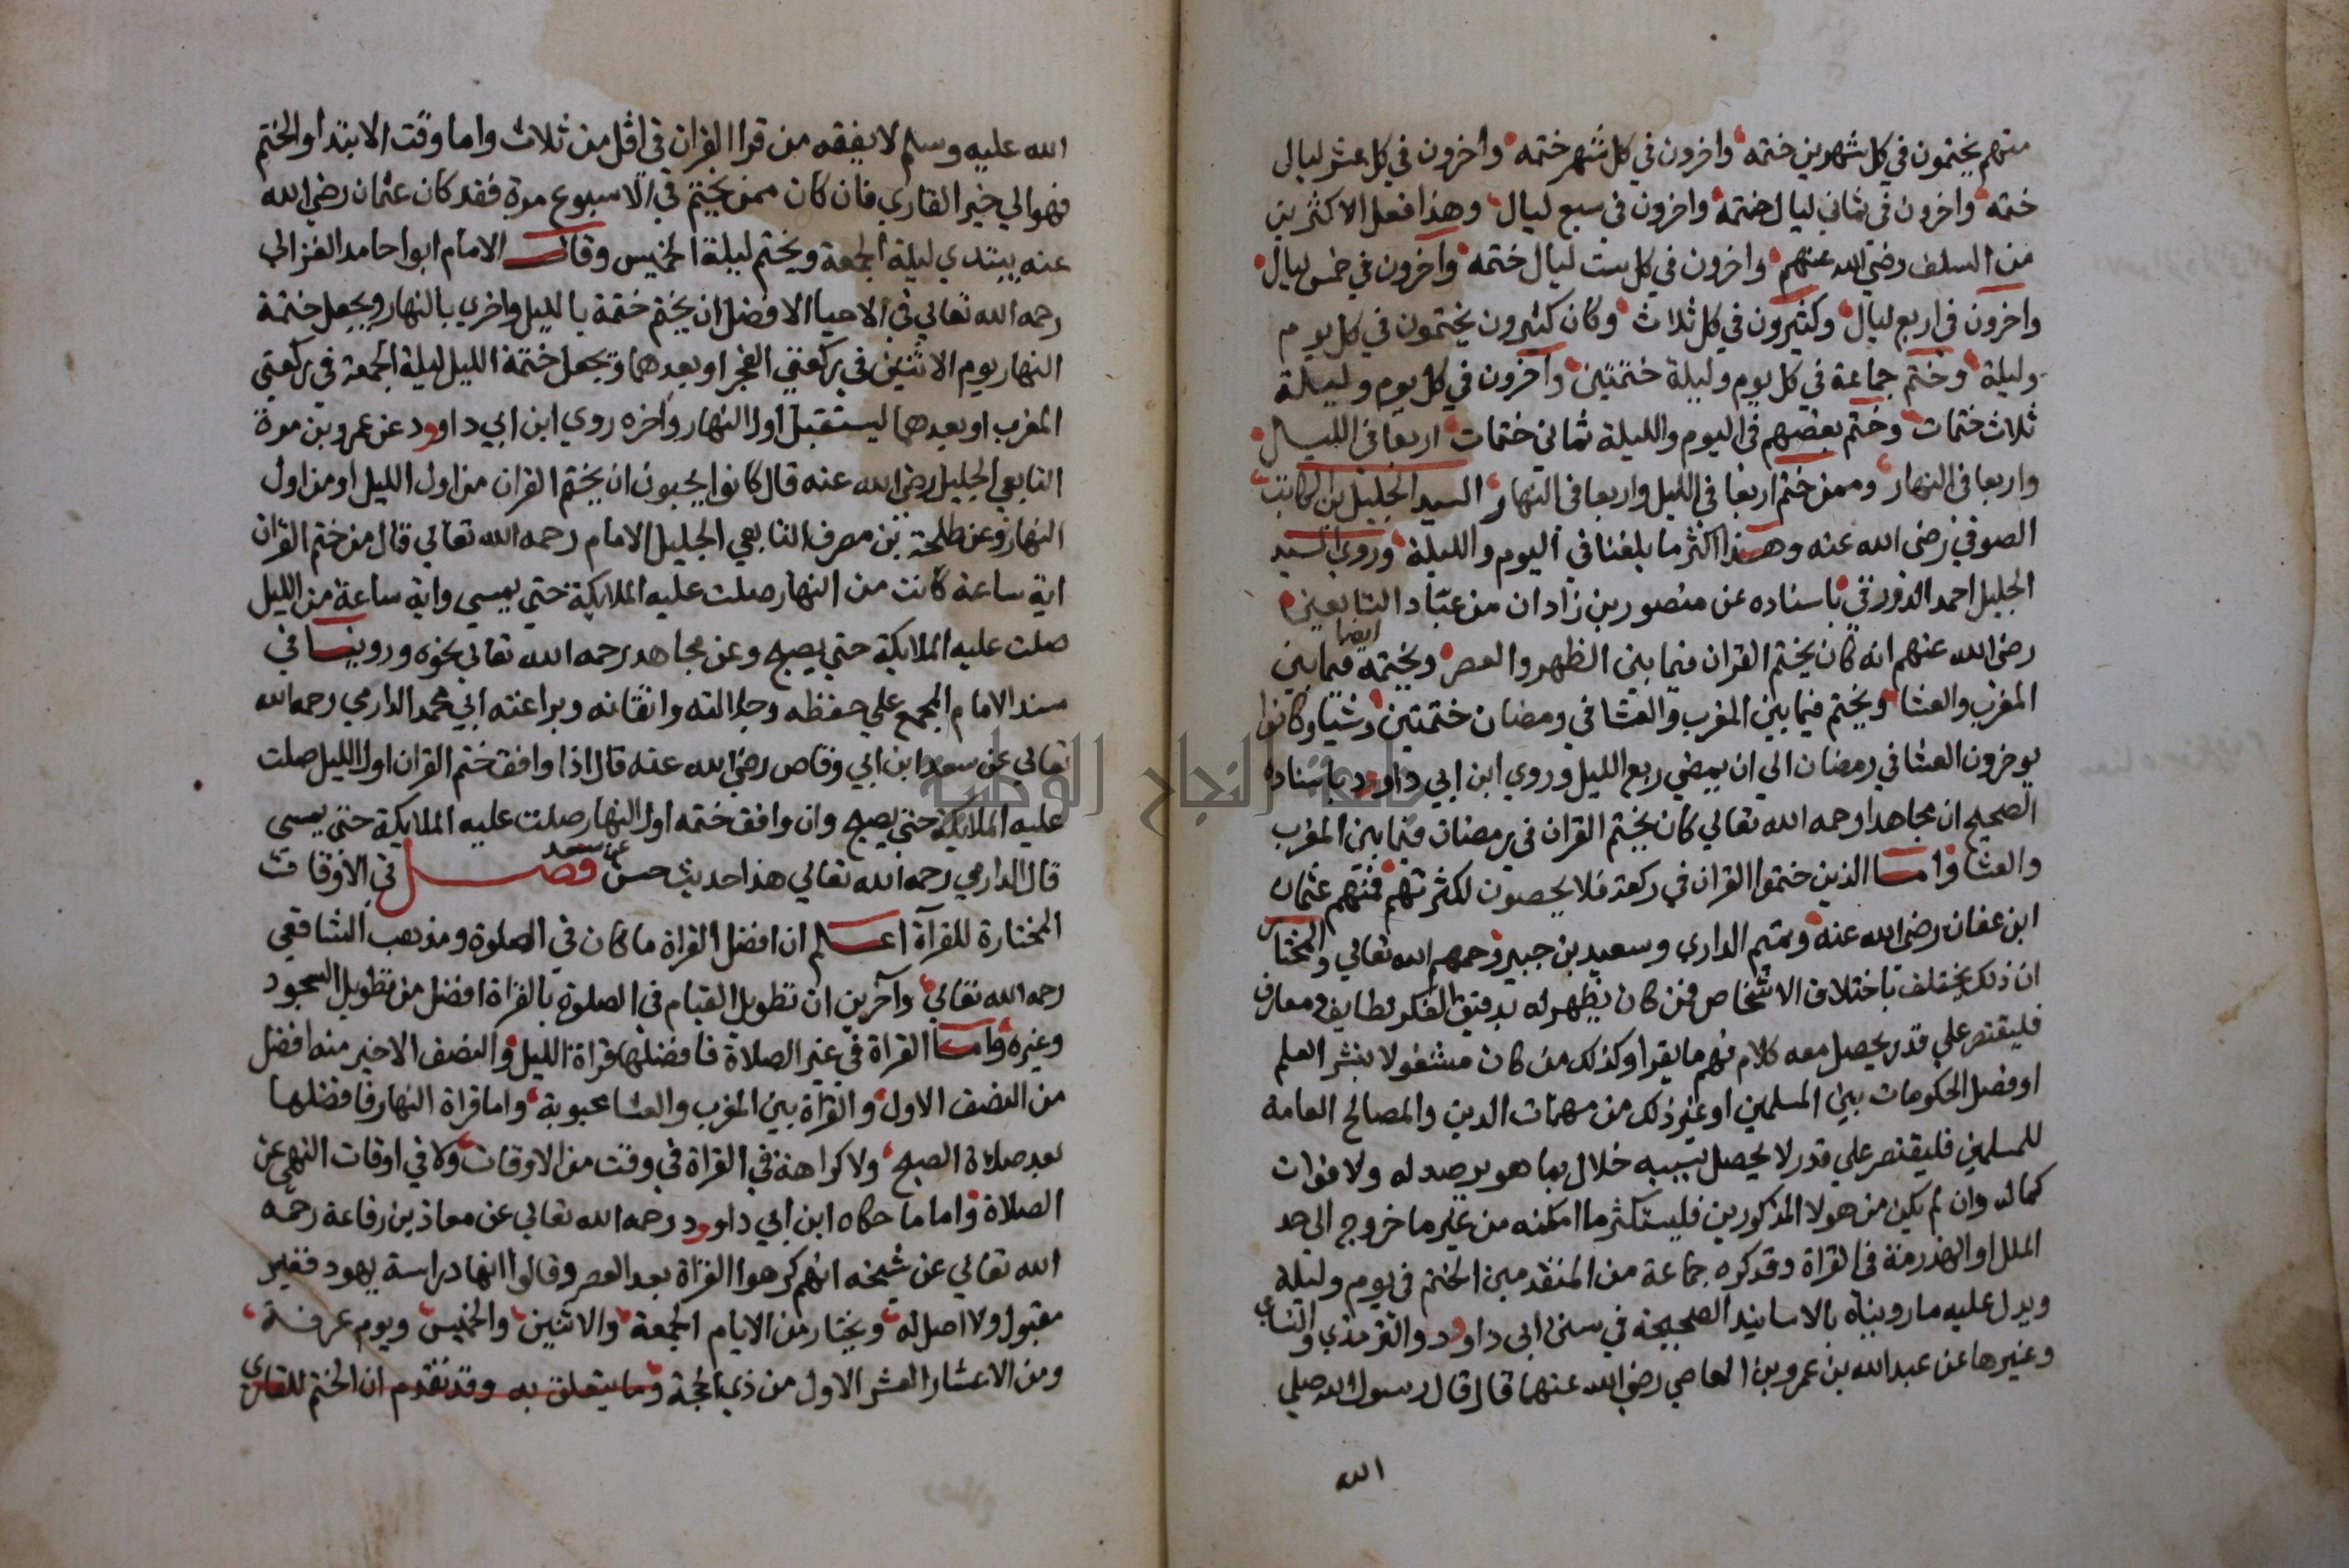 منهم يختمون في كل شهرين ختمه واخرون في كل شهر ختمه واخرون في كل عشر ليالي
ختمه واخرون في ثماني ليال ختمة واخرون في سبع ليال وهذا فعل الاكثرين
من السلف رضي الله عنهم واخرون في كل ست ليال ختمه واخرون في خمس ليال
واخرون في اربع ليال وكثيرون في كل ثلاث وكان كثيرون يختمون في كل يوم
وليلة وختم جماعة في كل يوم وليلة ختمتين واخرون في كل يوم وليلة
ثلاث ختمات وختم بعضهم في اليوم والليلة ثماني ختمات اربعا في الليل
واربعا في النهار وممن ختم اربعا في الليل واربعا في النهار السيد الجليل بن الكاتب
الصوفي رضي الله عنه وهذا اكثر ما بلغنا في اليوم والليلة وروي السيد
الجليل احمد الدورقي باسناده عن منصور بن زادان من عبّاد التابعين
رضي الله عنهم انه كان يختم القران فيما بين الظهر والعصر ويختمه ايضا فيما بين
المغرب والعشا ويختم فيما بين المغرب والعشا في رمضان ختمتين وشيا وكانوا
يوخرون العشا في رمضان الي ان يمضي ربع الليل وروي ابن ابي داوود باسناده
الصحيح ان مجاهدا رحمه الله تعالي كان يختم القران في رمضان فيما بين المغرب
والعشا واما الذين ختموا القران في ركعة فلا يحصون لكثرتهم فمنهم عثمان
ابن عفان رضي الله عنه وتميم الداري وسعيد بن جبير رحمهم الله تعالي والمختار
ان ذلك يختلف باختلاف الاشخاص فمن كان يظهر له بدقيق الفكر لطايف ومعارف
فليقتصر علي قدر يحصل معه كلام فهم ما يقرا وكذلك من كان مشغولا بنشر العلم
او فصل الحكومات بين المسلمين او غير ذلك من مهمات الدين والمصالح العامة
للمسلمين فليقتصر علي قدر لا يحصل بسببه خلال بما هو مرصد له ولا فوات
كماله وان لم يكن من هولا المذكورين فليستكثر ما امكنه من غير ما خروج الي حد
الملل او الهذرمة في القراة وقد كره جماعة من المتقدمين الختم في يوم وليلة
ويدل عليه ما رويناه بالاسانيد الصحيحة في سنن ابي داوود والترمذي والنساي
وغيرها عن عبد الله بن عمرو بن العاصي رضي الله عنهما قال قال رسول الله صلي
الله
الله عليه وسلم لا يفقه من قرا القران في اقل من ثلاث واما وقت الابتدا والختم
فهو الي خير القاري فان كان ممن يختم في الاسبوع مرة فقد كان عثمان رضي الله
عنه يبتدي ليلة الجمعة ويختم ليلة الخميس وقال الامام ابوا حامد الغزالي
رحمه الله تعالي في الاحيا الافضل ان يختم ختمة بالليل واخري بالنهار ويجعل ختمة
النهار يوم الاثنين في ركعتي الفجر او بعدهما ويجعل ختمة الليل ليلة الجمعة في ركعتي
المغرب او بعدهما ليستقبل اول النهار واخره روي ابن ابي داوود عن عمرو بن مرة
التابعي الجليل رضي الله عنه قال كانوا يحبون ان يختم القران من اول الليل او من اول
النهار وعن طلحة بن مصرف التابعي الجليل الامام رحمه الله تعالي قال من ختم القران
اية ساعة كانت من النهار صلت عليه الملايكة حتي يمسي واية ساعة من الليل
صلت عليه الملايكة حتي يصبح وعن مجاهد رحمه الله تعالي نحوه وروينا في
مسند الامام المجمع علي حفظه وجلالته واتقانه وبراعته ابي محمد الدارمي رحمه الله
تعالي عن سعد ابن ابي وقاص رضي الله عنه قال اذا وافق ختم القران اول الليل صلت
عليه الملايكة حتي يصبح وان وافق ختمه اول النهار صلت عليه الملايكة حتي يمسي
قال الدارمي رحمه الله تعالي هذا حديث حسن عن سعد فصل في الاوقات
المختارة للقرآة اعلم ان افضل القراة ما كان في الصلوة ومذهب الشافعي
رحمه الله تعالي وآخرين ان تطويل القيام في الصلوة بالقراة افضل من تطويل السجود
وغيره واما القراة في غير الصلاة فافضلها قراة الليل والنصف الاخير منه افضل
من النصف الاول والقراة بين المغرب والعشا محبوبة واما قراة النهار فافضلها
بعد صلاة الصبح ولا كراهة في القراة في وقت من الاوقات ولا في اوقات النهي عن
الصلاة واما ما حكاه ابن ابي داوود رحمه الله تعالي عن معاذ بن رفاعة رحمه
الله تعالي عن شيخه انهم كرهوا القراة بعد العصر وقالوا انها دراسة يهود فغير
مقبول ولا اصل له ويختار من الايام الجمعة والاثنين والخميس ويوم عرفة
ومن الاعشار العشر الاول من ذي الحجة وما يتعلق به وقد تقدم ان الختم للقاري
جامعة النجاح الوطنية